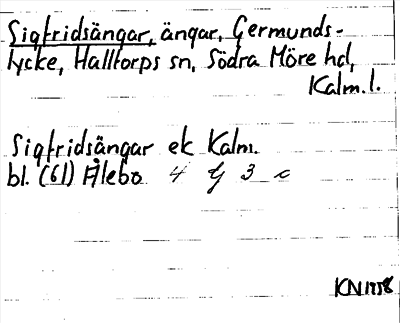 Sigfridsängar, ängar, Germunds-
lycke, Halltorps sn, Södra Möre hd,
Kalm. l.
Sigfridsängar ek Kalm.
bl. (61) Ålebo 4 G 3 c
KN1958